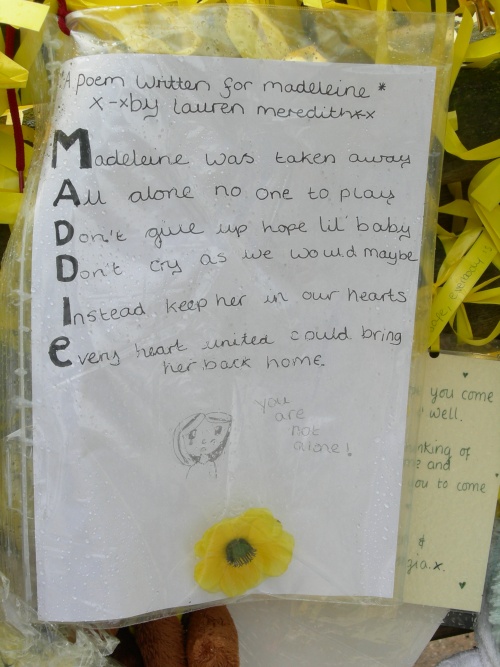 "A poem written for madeleine *
x-xby lauren meredithxx
Madeleine was taken away
All alone no one to play
Don't give up hope lil' baby
Don't cry as we would maybe
Instead keep her in our hearts
every heart united could bring
her back home.
you
are
not
alone!
you come
well.
and
you to come
&
x.